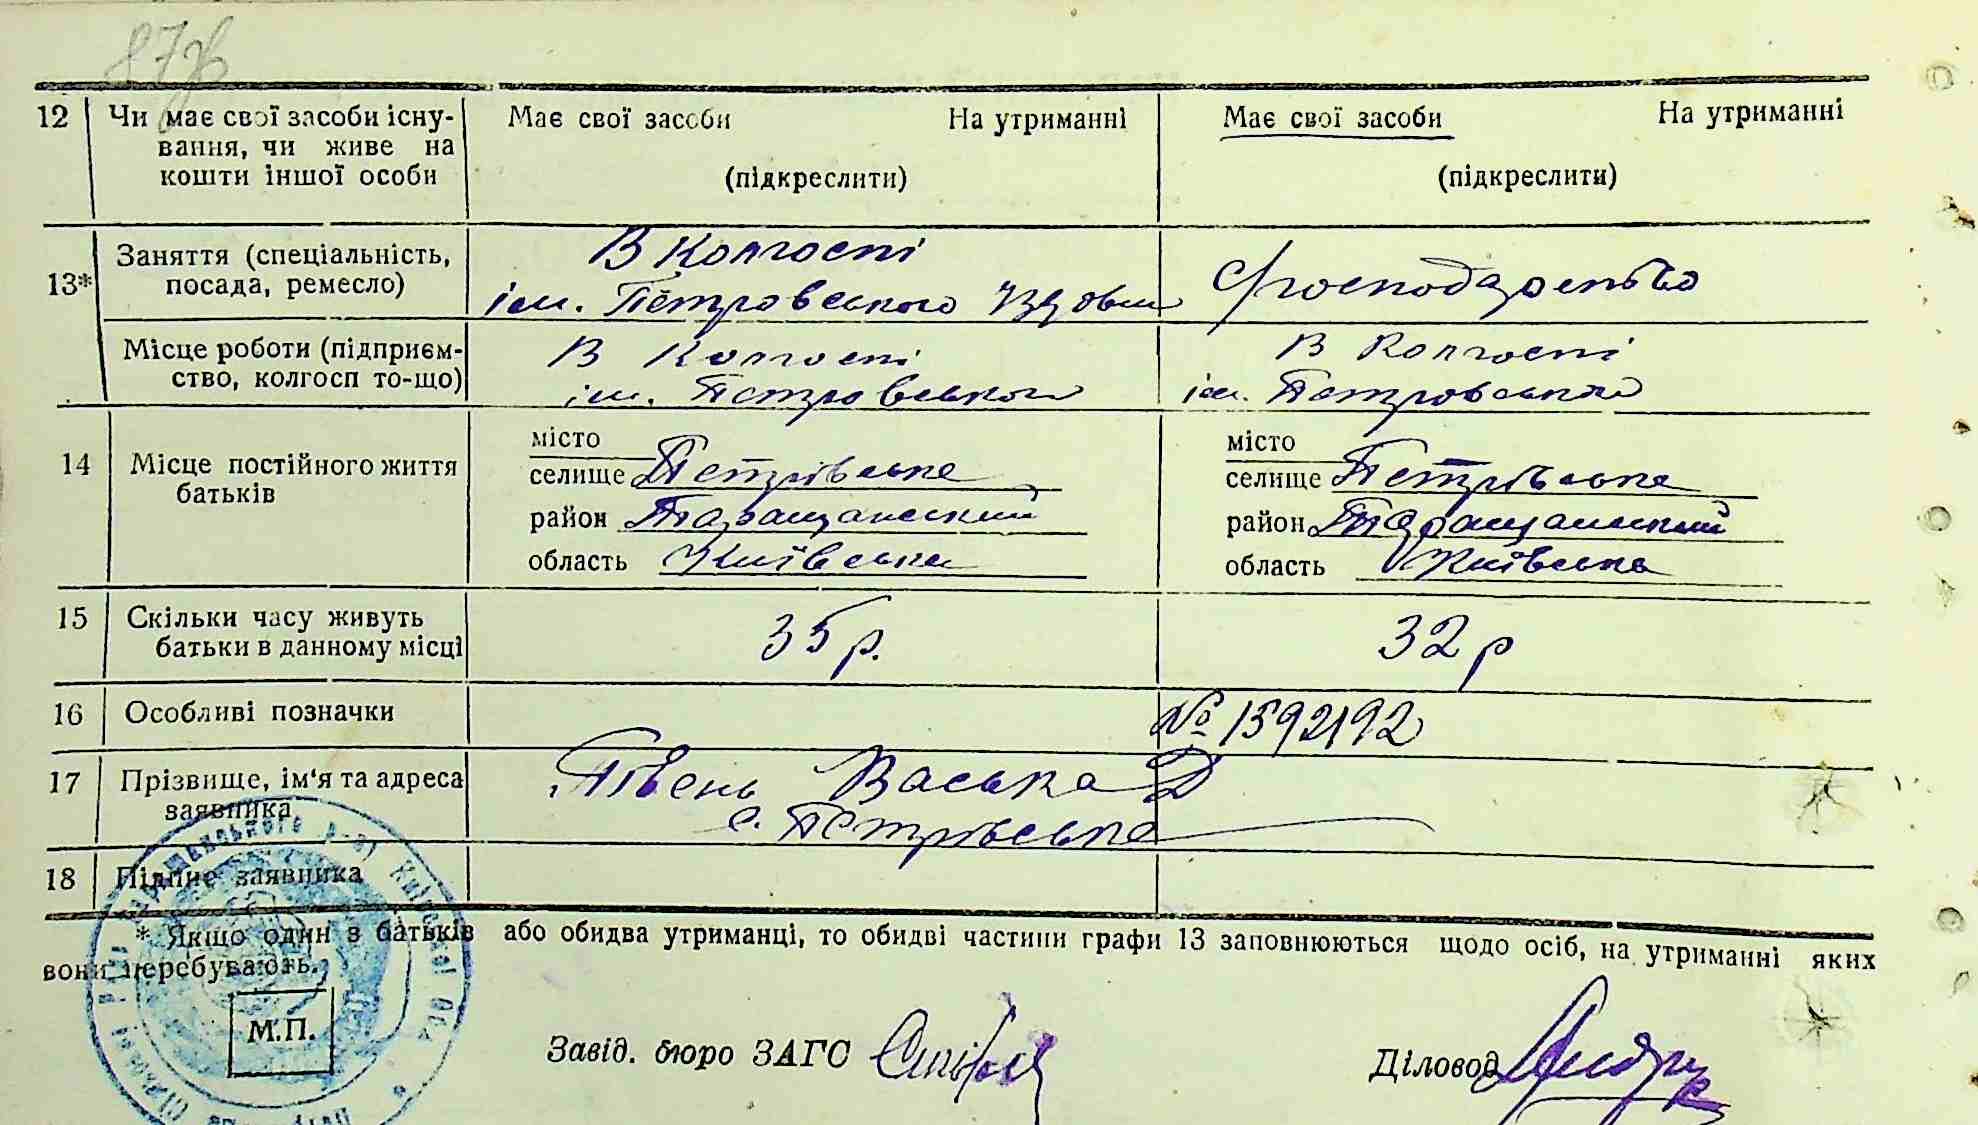 87
12 Чи має свої засоби існу-
вання, чи живе на
кошти іншої особи
Має свої засоби На утриманні
(підкреслити)
Має свої засоби На утриманні
(підкреслити)
13* Заняття (спеціальність,
посада, ремесло)
В Колгоспі
ім. Петровського їздовим
С/господарство
Місце роботи (підприєм-
ство, колгосп то-що)
В Колгоспі
ім. Петровського
В Колгоспі
ім. Петровського
14 Місце постійного життя
батьків
місто
селище Петрівське
район Таращанський
область Київська
місто
селище Петрівське
район Таращанський
область Київська
15 Скільки часу живуть
батьки в данному місці
35 р.
32 р
16 Особливі позначки
№ 1592192
17 Прізвище, ім'я та адреса
заявника
Півень Васька Д
с. Петрівське
18 Підпис заявника
* Якщо один з батьків або обидва утриманці, то обидві частини графи 13 заповнюються щодо осіб, на утриманні яких
вони перебувають.
М.П.
Завід. бюро ЗАГС
Діловод